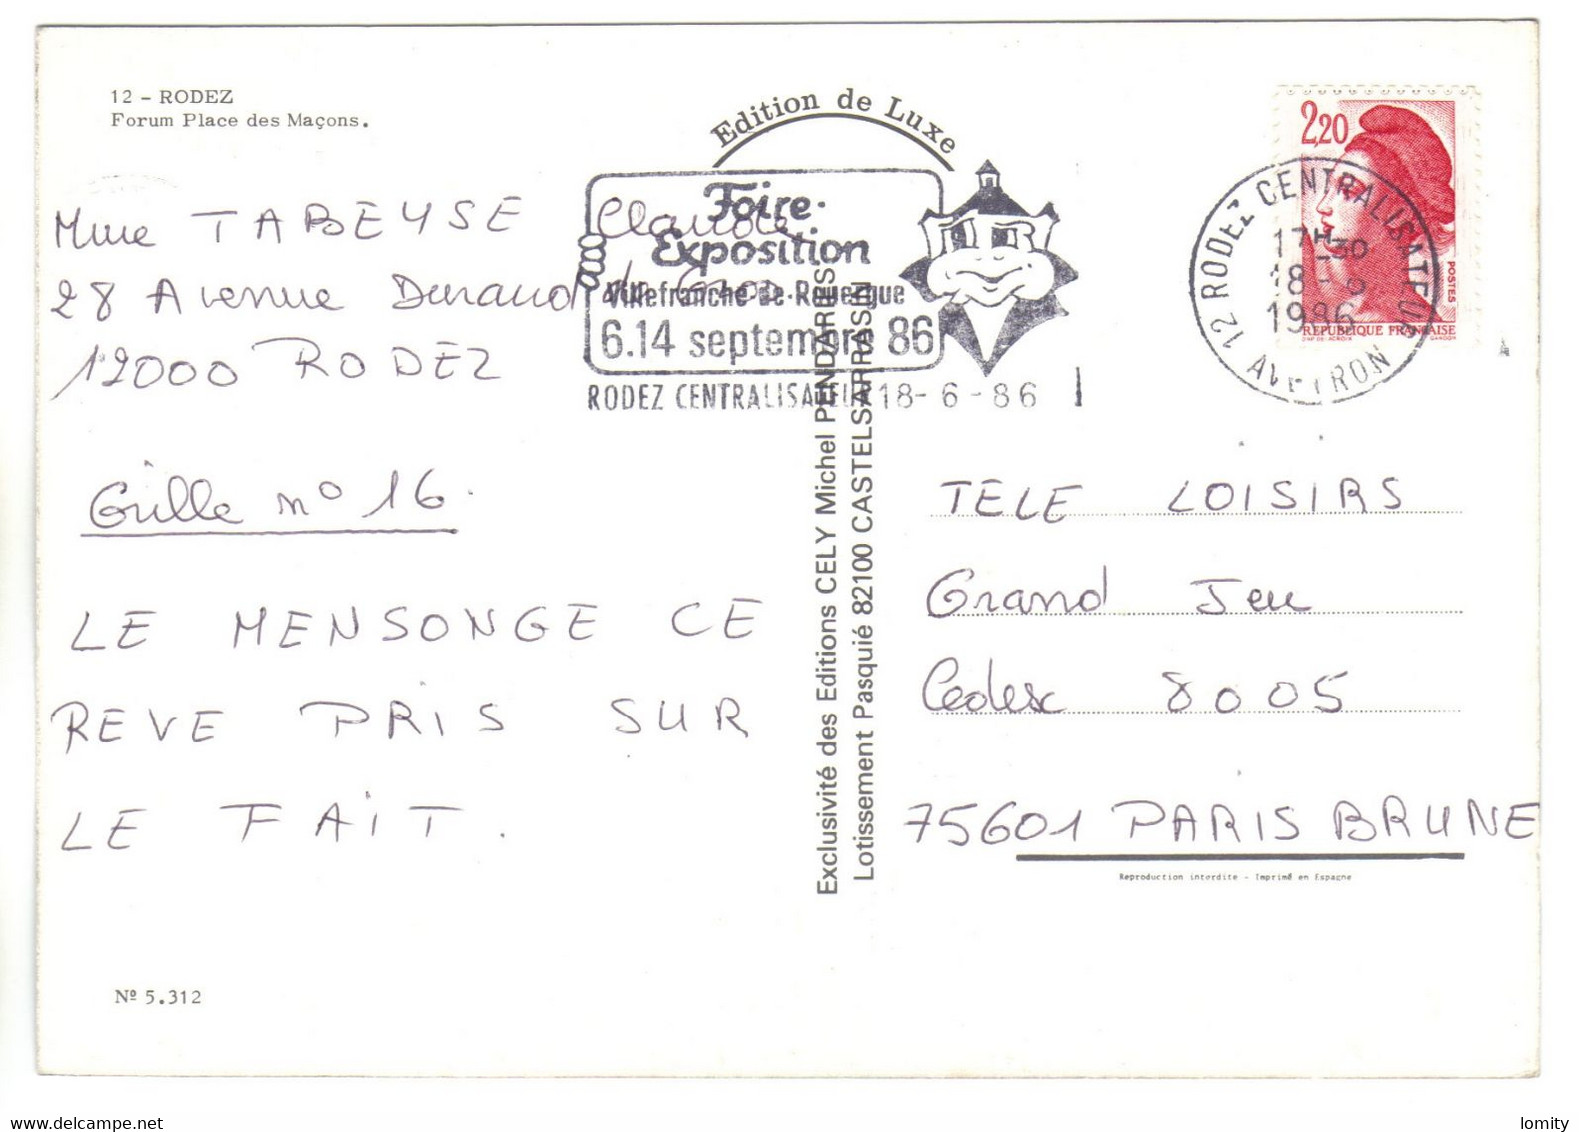 12 - RODEZ
Forum Place des Maçons.
Edition de Luxe
Mme TABEYSE Claudie
28 Avenue Durand de Gros
12000 RODEZ
Grille n° 16.
LE MENSONGE CE
REVE PRIS SUR
LE FAIT.
Nº 5.312
Foire-
Exposition
Villefranche de Rouergue
6.14 septembre 86
RODEZ CENTRALISATEUR 18-6-86
Exclusivité des Editions CELY Michel PENDARIES
Lotissement Pasquié 82100 CASTELSARRASIN
2,20
POSTES
REPUBLIQUE FRANÇAISE
GANDON
12 RODEZ CENTRALISATEUR
17H30
18-6
1986
AVEYRON
TELE LOISIRS
Grand Jeu
Cedex 8005
75601 PARIS BRUNE
Reproduction interdite - Imprimé en Espagne
lomity